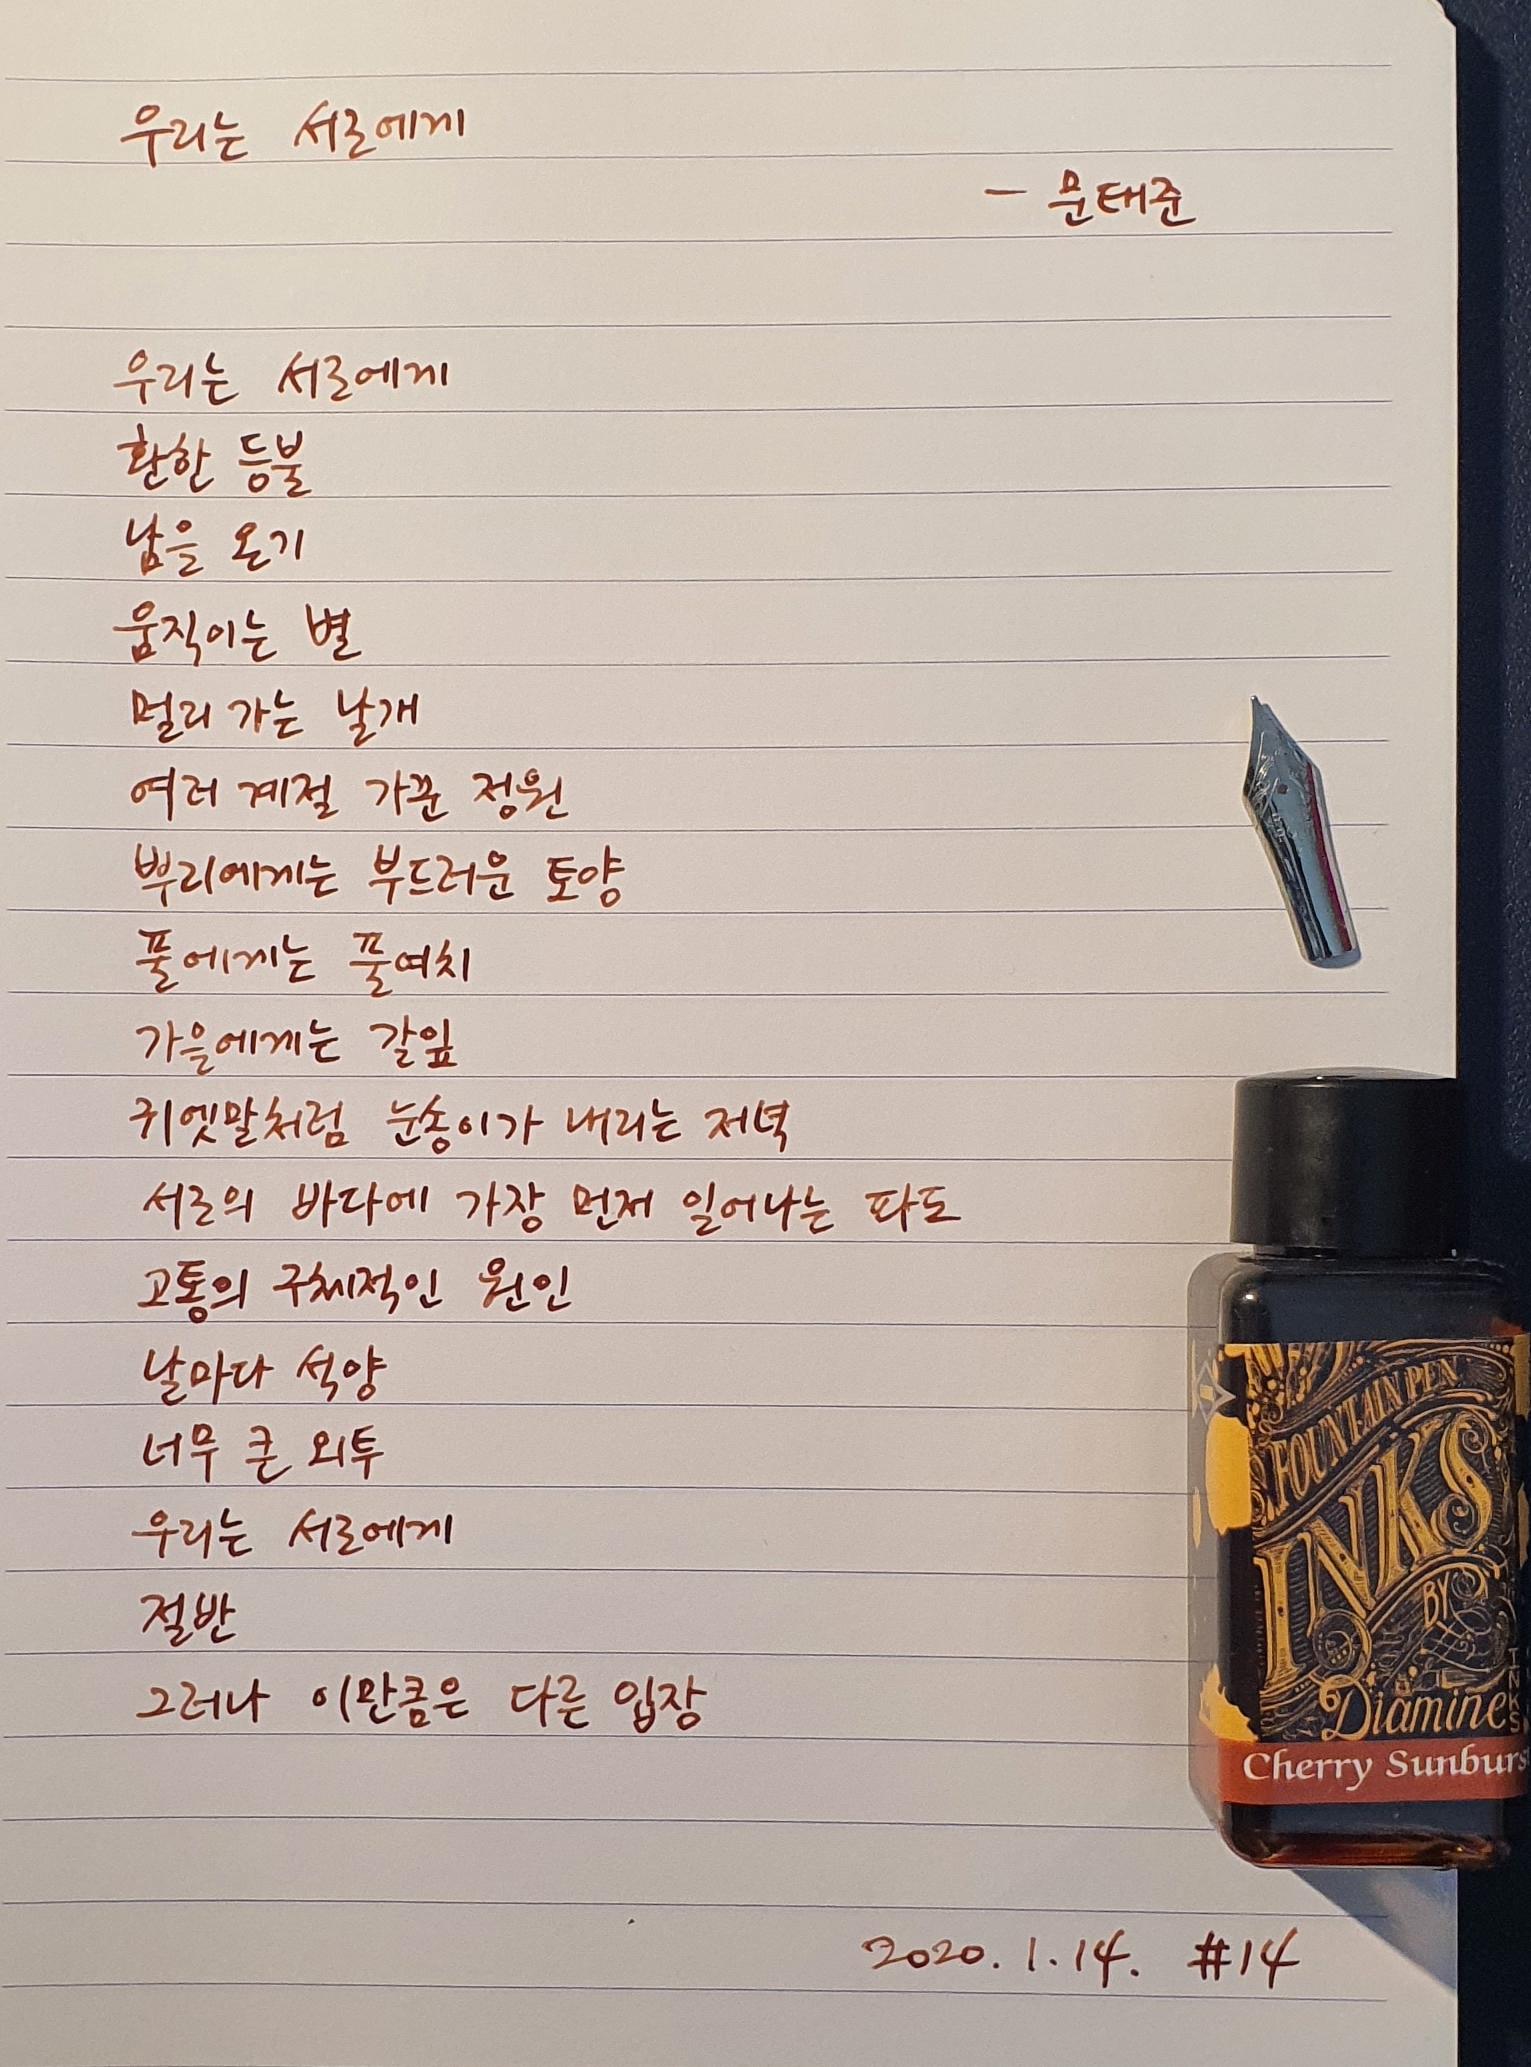 우리는 서로에게
- 문태준
우리는 서로에게
환한 등불
남을 온기
움직이는 별
멀리 가는 날개
여러 계절 가꾼 정원
뿌리에게는 부드러운 토양
풀에게는 풀여치
가을에게는 갈잎
귀엣말처럼 눈송이가 내리는 저녁
서로의 바다에 가장 먼저 일어나는 파도
고통의 구체적인 원인
날마다 석양
너무 큰 외투
우리는 서로에게
절반
그러나 이만큼은 다른 입장
2020. 1. 14. #14
FOUNTAIN PEN
INKS
BY
Diamine
Cherry Sunburs